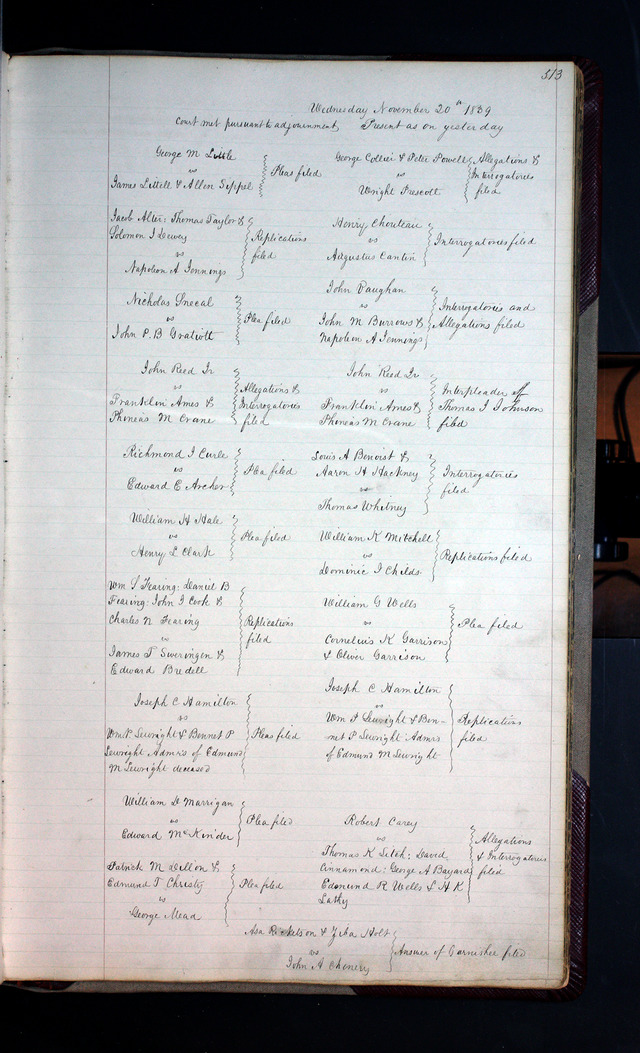 513
Wednesday November 20th 1839
Court met pursuant to adjournment, Present as on yesterday
George M Little
vs
James Littell & Allen Sippel
Pleas filed
George Collier & Peter Powell
vs
Wright Prescott
Allegations &
Interrogatories
filed
Jacob Alter: Thomas Taylor &
Solomon I Dewey
vs
Napoleon A Jennings
Replications
filed
Henry Chouteau
vs
Augustus Cantin
Interrogatories filed
Nicholas Snecal
vs
John P. B Gratiott
Plea filed
John Vaughan
vs
John M Burrows &
Napoleon A Jennings
Interrogatories and
Allegations filed
John Reed Jr
vs
Franklin Ames &
Phineas M Crane
Allegations &
Interrogatories
filed
John Reed Jr
vs
Franklin Ames &
Phineas M Crane
Interpleader of
Thomas I Johnson
filed
Richmond I Curle
vs
Edward E Archer
Plea filed
Louis A Benoist &
Aaron H Hackney
vs
Thomas Whitney
Interrogatories
filed
William H Hale
vs
Henry L Clark
Plea filed
William K Mitchell
vs
Dominic I Childs
Replications filed
Wm S Fearing: Daniel B
Fearing: John I Cook &
Charles N Fearing
vs
James T Sweringen &
Edward Bredell
Replications
filed
William G Wells
vs
Cornelius K Garrison
& Oliver Garrison
Plea filed
Joseph C Hamilton
vs
Wm P Sewright & Bennet P
Sewright Admrs of Edmund
M Sewright deceased
Pleas filed
Joseph C Hamilton
vs
Wm P Sewright & Ben-
net P Sewright Admrs
of Edmund M Sewright
Replications
filed
William D Marrigan
vs
Edward McKinder
Plea filed
Robert Carey
vs
Thomas K Sitch: David
Cinnamond: George A Bayard
Edmund R Wells & H K
Lathy
Allegations
& Interrogatories
filed
Patrick M Dillon &
Edmund T Christy
vs
George Mead
Plea filed
Asa Ricketson & Ziba Holt
vs
John A Chenery
Answer of Garnishee filed